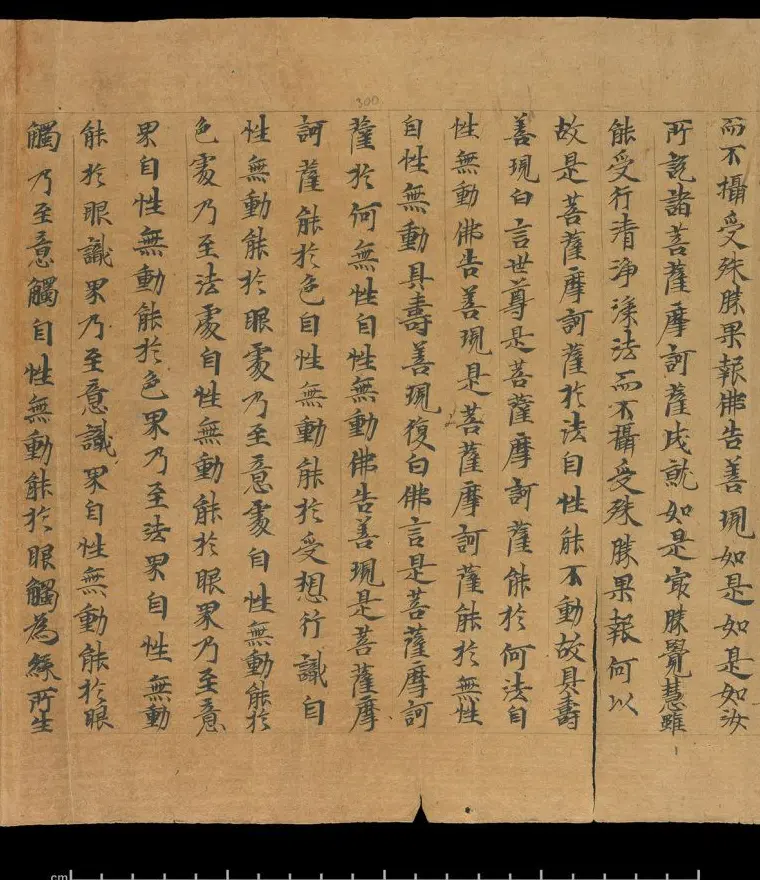 而不攝受殊勝果報佛告善現如是如是如汝
所說諸菩薩摩訶薩成就如是最勝覺慧雖
能受行清淨深法而不攝受殊勝果報何以
故是菩薩摩訶薩於法自性能不動故具壽
善現白言世尊是菩薩摩訶薩能於何法自
性無動佛告善現是菩薩摩訶薩能於無性
自性無動具壽善現復白佛言是菩薩摩訶
薩於何無性自性無動佛告善現是菩薩摩
訶薩能於色自性無動能於受想行識自
性無動能於眼處乃至意處自性無動能於
色處乃至法處自性無動能於眼界乃至意
界自性無動能於色界乃至法界自性無動
能於眼識界乃至意識界自性無動能於眼
觸乃至意觸自性無動能於眼觸為緣所生
300
cm